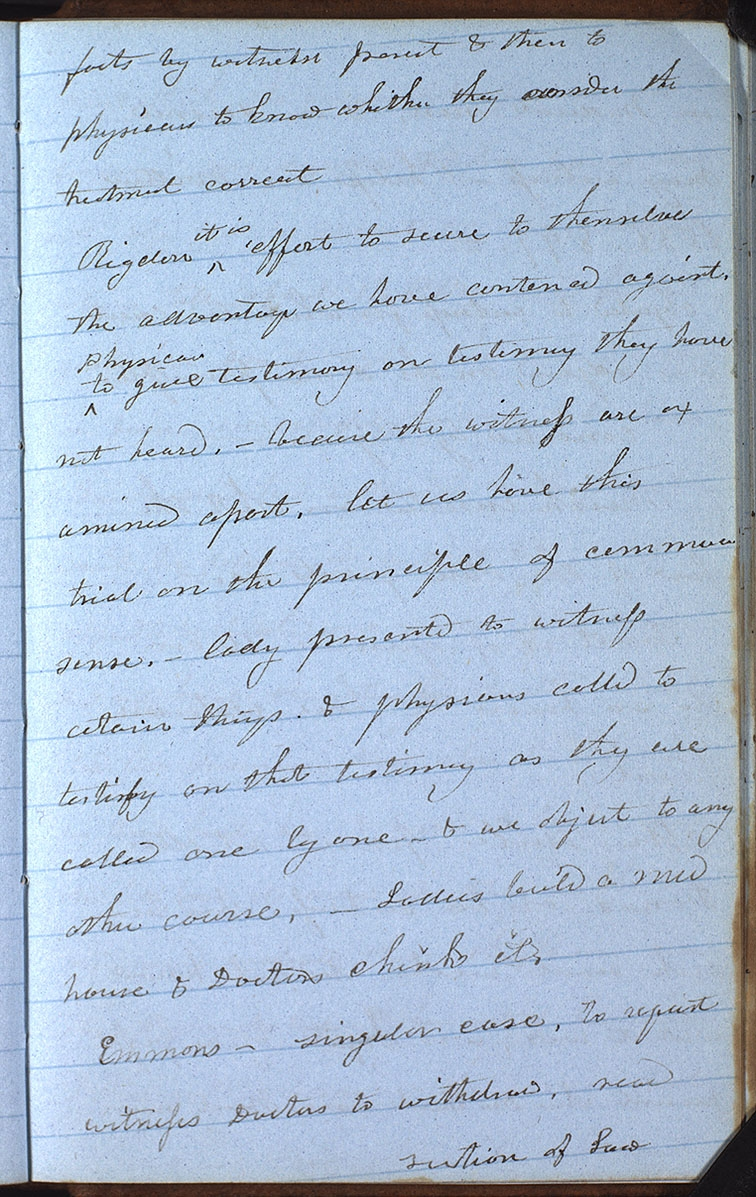 facts by witness present & then to
physicians to know whether they consider the
treatment correct
Rigdon it is effort to secure to themselve
the advantage we have contened against.
physician
to give testimony on testimony they have
not heard. - because the witness are ex
amined apart. let us have this
trial on the principle of common
sense. - Lady presented to witness
certain things. & physicians called to
testify on that testimony as they are
called one by one - & we object to any
other course, - Ladies build a mud
house & Doctors chink it.
Emmons - singular case, to request
witness Doctors to withdraw. read
section of Law